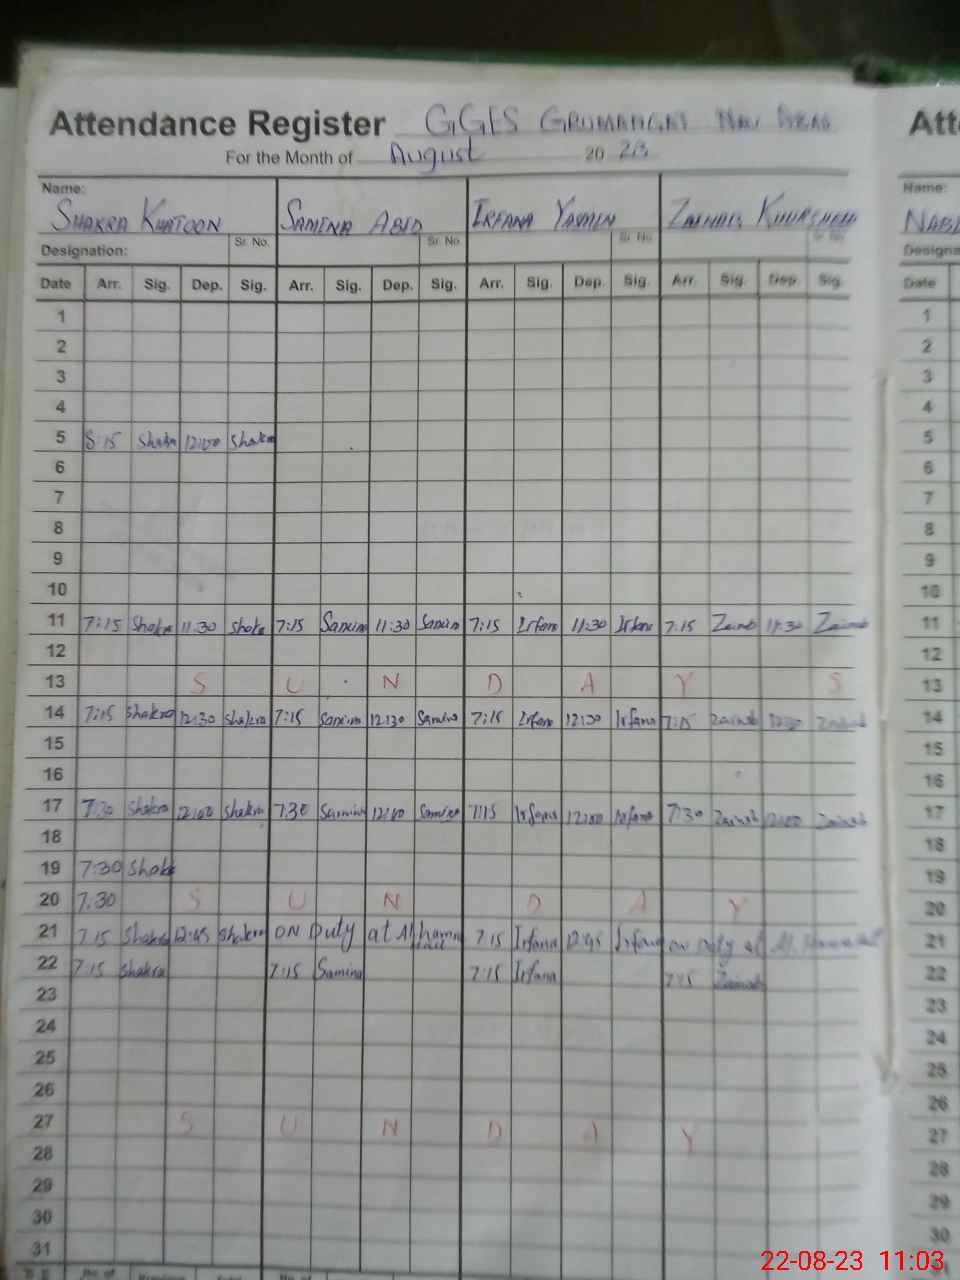 Attendance Register GGES
Att
For the Month of August 20 23
Name: Name:
SHAKRA KHATOON SAMINA ABID IRFANA YASMIN ZAINAB KHURSHEED NABI
Sr. No. Sr. No. Sr. No. Sr. No.
Designation: Designa
Date Arr. Sig. Dep. Sig. Arr. Sig. Dep. Sig. Arr. Sig. Dep. Sig. Arr. Sig. Dep. Sig. Date
1 1
2 2
3 3
4 4
5 8:15 Shakra 12:00 Shakra 5
6 6
7 7
8 8
9 9
10 10
11 7:15 Shakra 11:30 Shakra 7:15 Samina 11:30 Samina 7:15 Irfana 11:30 Irfana 7:15 Zainab 11:30 Zainab 11
12 12
13 S U N D A Y S 13
14 7:15 Shakra 12:30 Shakra 7:15 Samina 12:30 Samina 7:15 Irfana 12:30 Irfana 7:15 Zainab 12:30 Zainab 14
15 15
16 16
17 7:30 Shakra 12:00 Shakra 7:30 Samina 12:00 Samina 7:15 Irfana 12:00 Irfana 7:30 Zainab 12:00 Zainab 17
18 18
19 7:30 Shakra 19
20 7:30 S U N D A Y 20
21 7:15 Shakra 12:45 Shakra ON Duty at Al 7:15 Irfana 12:45 Irfana on Duty at Al 21
22 7:15 Shakra 7:15 Samina 7:15 Irfana 7:15 Zainab 22
23 23
24 24
25 25
26 26
27 S U N D A Y 27
28 28
29 29
30 30
31
22-08-23 11:03